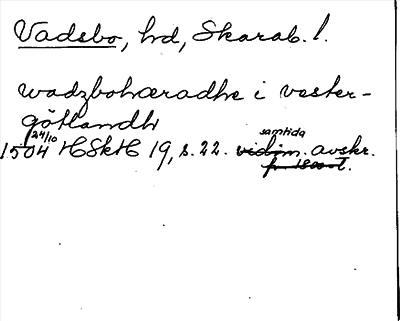 Vadsbo, hd, Skarab. l.
wadzbohæradhe i vester-
götlandh
24/10 samtida
1504 HSkH 19, s. 22. vidim. avskr.
fr 1800-t.